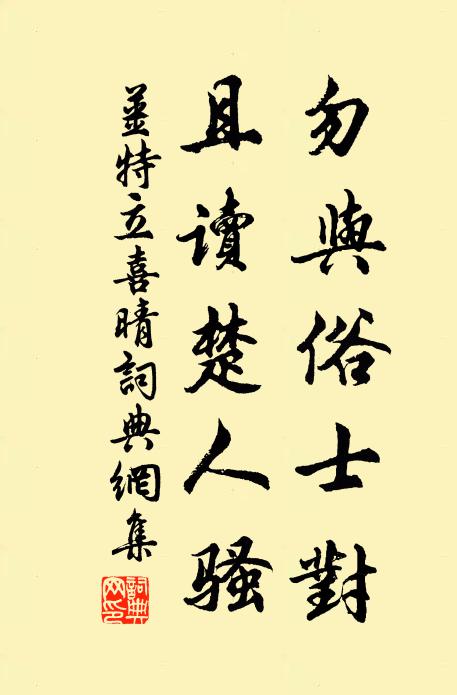 勿與俗士對
且讀楚人騷
姜特立喜晴詞典網集
詞典網印